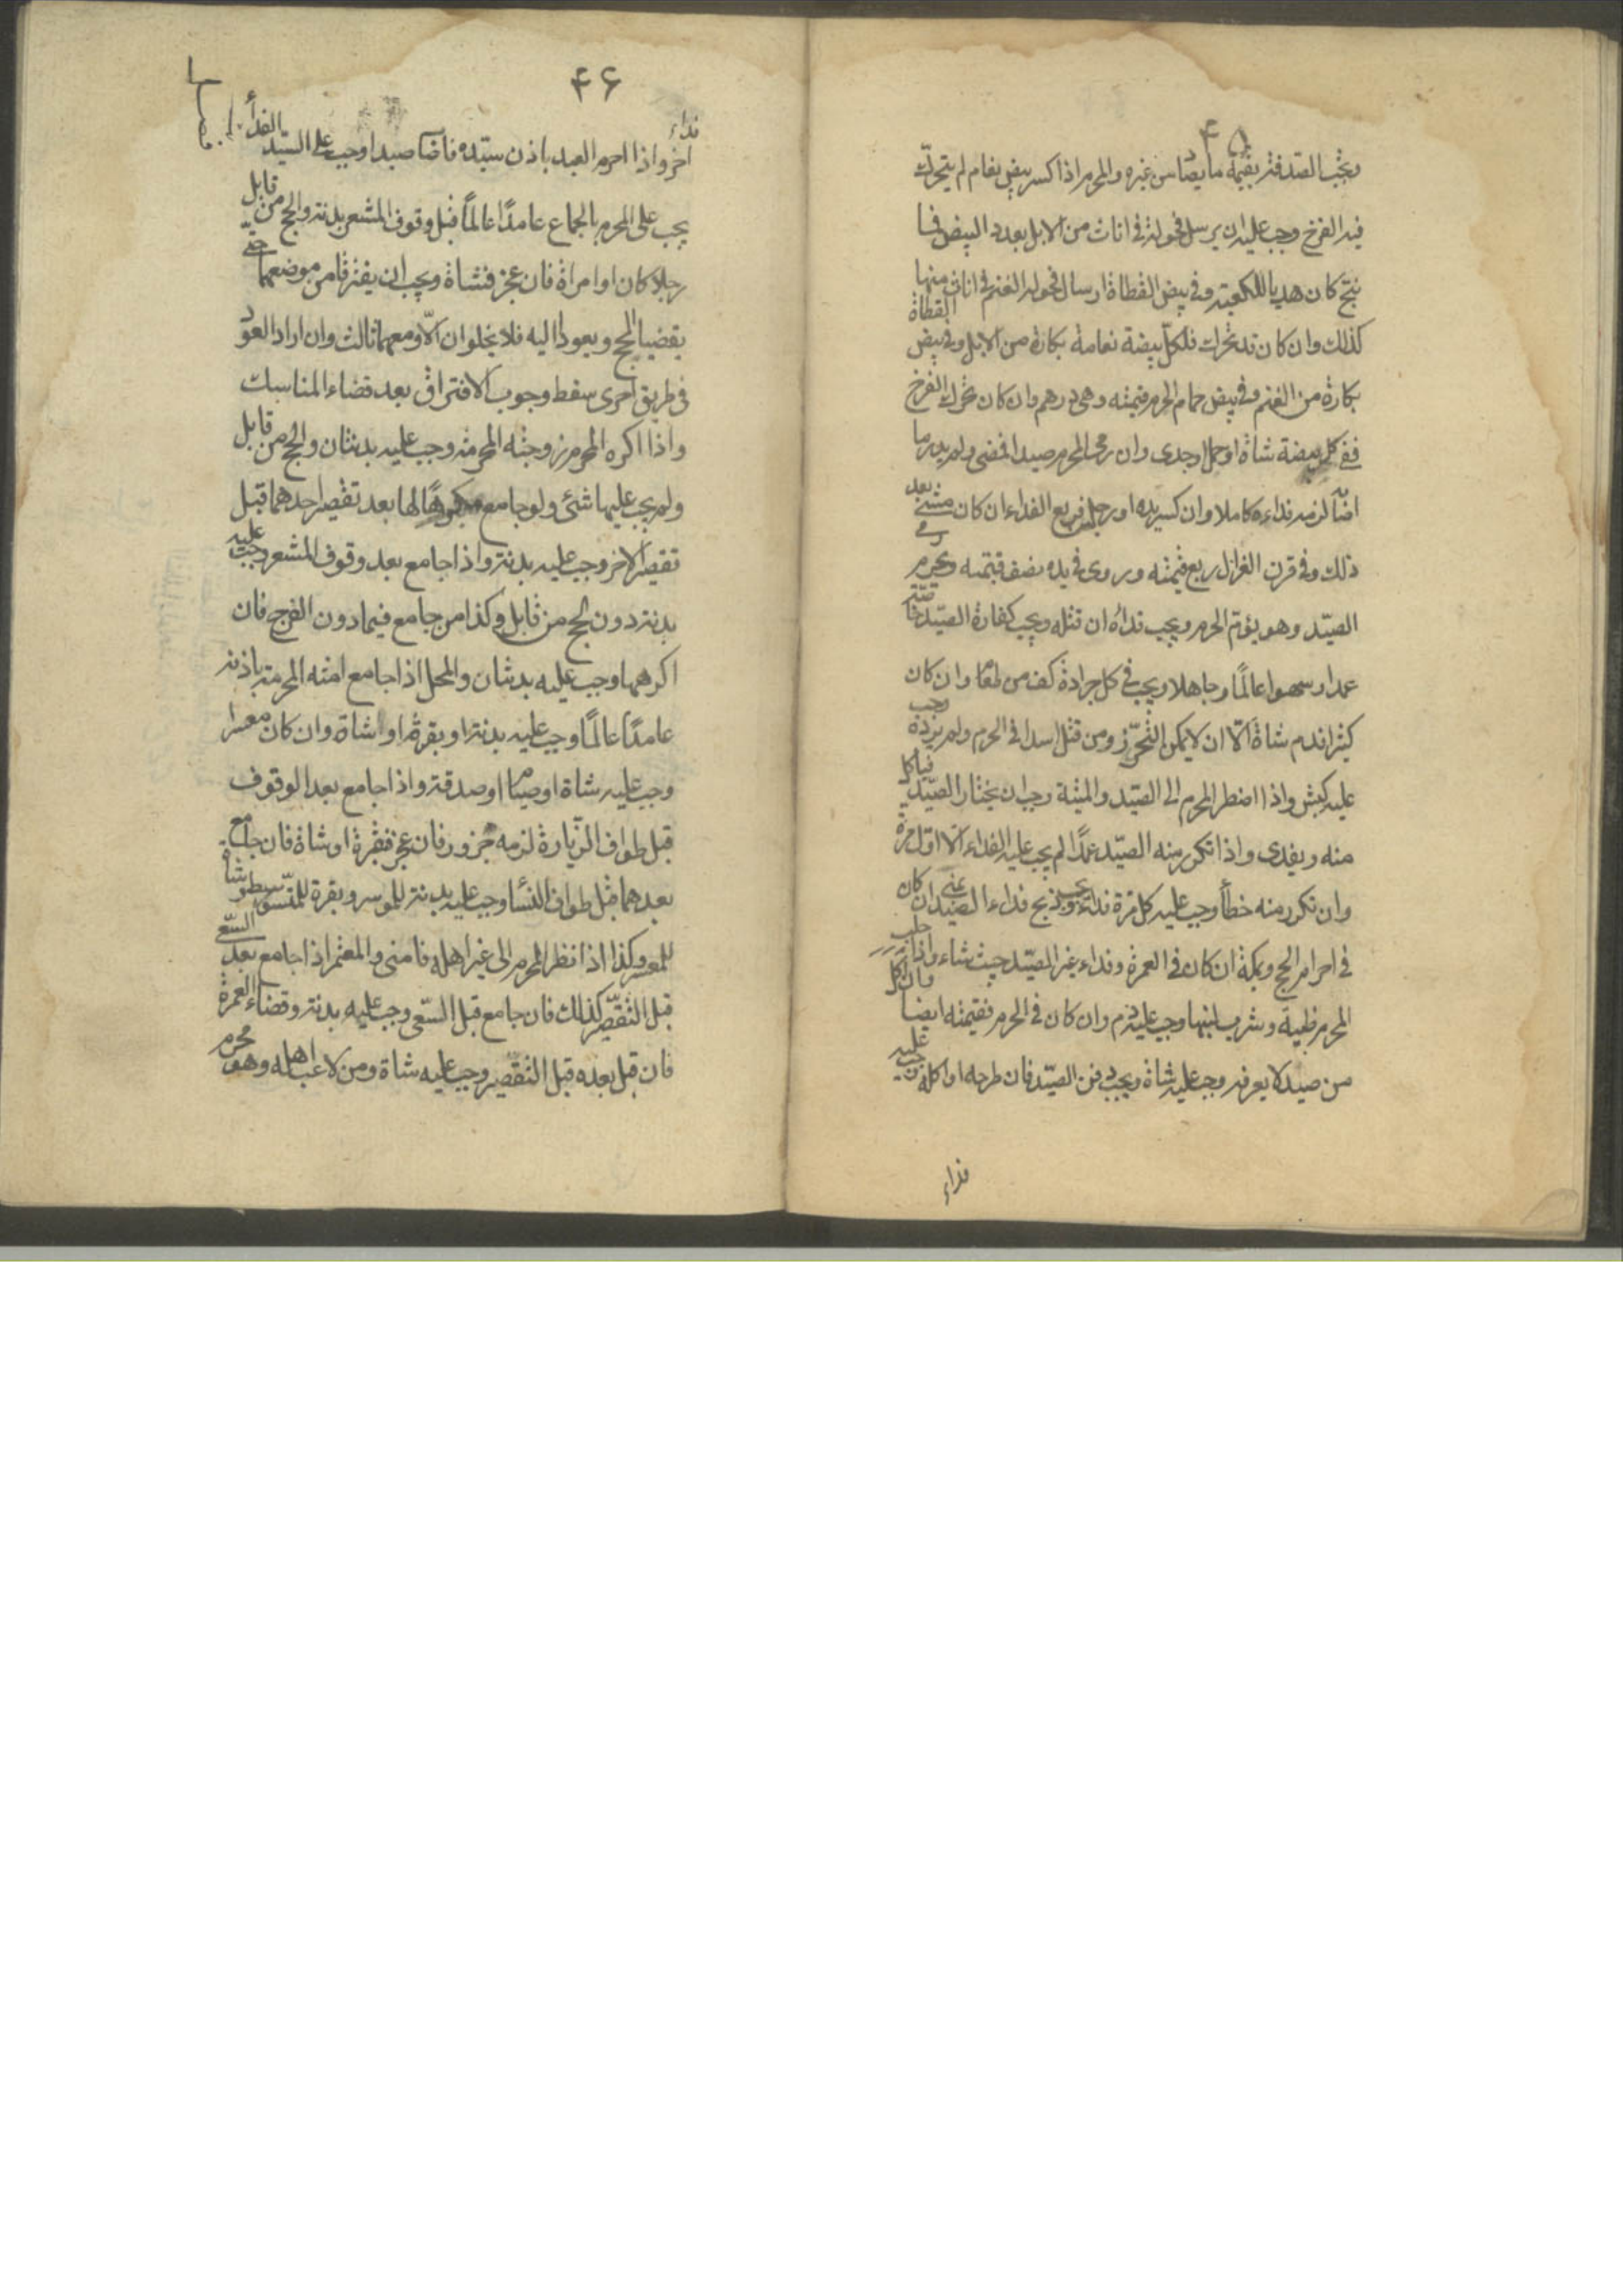 ۴۵
ويجب الصدقة بقيمة ما يصاد من غيره والمحرم اذا كسر بيض نعام لم يتحرك
فيه الفرخ وجب عليه ان يرسل فحولة في اناث من الابل بعدد البيض فما
نتج كان هديا للكعبة وفي بيض القطاة ارسال فحولة الغنم في اناث منها
كذلك وان كان قد تحرك فلكل بيضة نعامة بكارة من الابل وفي بيض القطاة
بكارة من الغنم وفي بيض حمام الحرم قيمته وهى درهم وان كان تحرك الفرخ
ففي كل بيضة شاة او حمل او جدى وان رمى المحرم صيدا فمضى ولم يدر ما
اصابه لزمه فداءه كاملا وان كسر يده او رجله فربع الفداء ان كان مشى بعد
ذلك وفي قرن الغزال ربع قيمته وروى في يده نصف قيمته ويحرم رمى
الصيد وهو يؤم الحرم ويجب فداؤه ان قتله ويجب كفارة الصيد خاصة
عمدا وسهوا عالمًا وجاهلا ويجب في كل جرادة كف من طعام وان كان
كثيرا فدم شاة الّا ان لا يمكن التحرّز ومن قتل اسدا في الحرم ولم يرده وجب
عليه كبش واذا اضطر المحرم الى الصيد والميتة وجب ان يختار الصيد فياكل
منه ويفدى واذا تكرر منه الصيد عمدًا لم يجب عليه الفداء الّا اول مرة
وان تكرر منه خطأ وجب عليه كل مرة فداء ويجب ذبح فداء الصيد بمنى ان كان
في احرام الحج وبمكة ان كان في العمرة وفداء غير الصيد حيث شاء واذا حلب
المحرم ظبية وشرب لبنها وجب عليه دم وان كان في الحرم فقيمته ايضا وان اكل
من صيد لا يعرفه وجب عليه شاة ويجب دفن الصيد فان طرحه او اكله وجب عليه
فداء
۴۶
فداء
اخر واذا احرم العبد باذن سيّده فاصاب صيدا وجب على السيّد الفداء
يجب على المحرم بالجماع عامدًا عالمًا قبل وقوف المشعر بدنة والحج من قابل
رجلا كان او امراة فان عجز فشاة ويجب ان يفترقا من موضعهما حتى
يقضيا الحج ويعودا اليه فلا يخلوان الّا ومعهما ثالث وان اراد العود
في طريق اخرى سقط وجوب الافتراق بعد قضاء المناسك
واذا اكره المحرم زوجته المحرمة وجب عليه بدنتان والحج من قابل
ولم يجب عليها شئ ولو جامع مكرها لها بعد تقصير احدهما قبل
تقصير الاخر وجب عليه بدنة واذا جامع بعد وقوف المشعر وجبت عليه
بدنة دون الحج من قابل وكذا من جامع فيما دون الفرج فان
اكرهها وجب عليه بدنتان والمحل اذا جامع امته المحرمة باذنه
عامدًا عالمًا وجب عليه بدنة او بقرة او شاة وان كان معسرا
وجب عليه شاة او صيام او صدقة واذا جامع بعد الوقوف
قبل طواف الزيارة لزمه جزور فان عجز فبقرة او شاة فان جامع
بعدهما قبل طواف النساء وجب عليه بدنة للموسر وبقرة للمتوسط وشاة
للمعسر وكذا اذا نظر المحرم الى غير اهله فامنى والمعتمر اذا جامع بعد السّعى
قبل التقصير كذلك فان جامع قبل السّعى وجب عليه بدنة وقضاء العمرة
فان قبل بعده قبل التقصير وجب عليه شاة ومن لاعب اهله وهو محرم